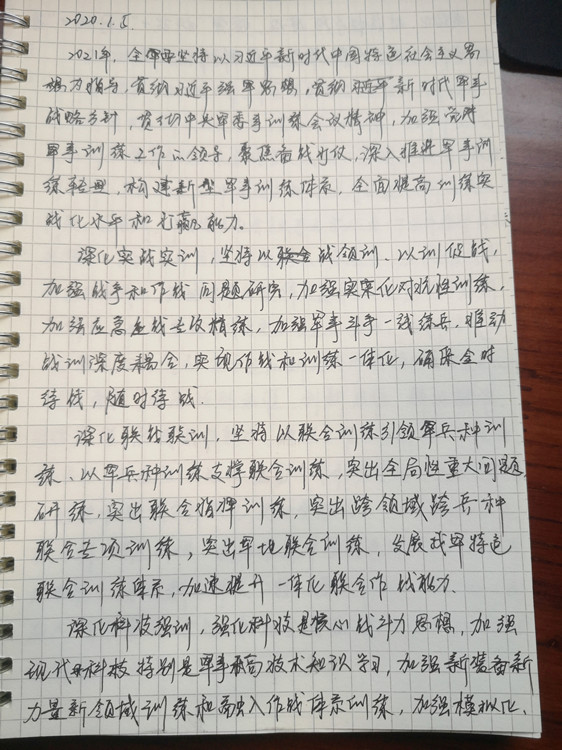 2020.1.5.
2021年,全军要坚持以习近平新时代中国特色社会主义思
想为指导,贯彻习近平强军思想,贯彻新时代军事
战略方针,贯彻中央军委军事训练会议精神,加强党对
军事训练工作的领导,聚焦备战打仗,深入推进军事训
练转型,构建新型军事训练体系,全面提高训练实
战化水平和打赢能力。
深化实战实训,坚持以战领训、以训促战,
加强战争和作战问题研究,加强实案化对抗性训练,
加强应急应战专攻精练,加强军事斗争一线练兵,推动
战训深度耦合,实现作战和训练一体化,确保全时
待战,随时待战.
深化联战联训,坚持以联合训练引领军兵种训
练、以军兵种训练支撑联合训练,突出全局性重大问题
研练,突出联合指挥训练,突出跨领域跨兵种
联合专项训练,突出军地联合训练,发展我军特色
联合训练体系,加速提升一体化联合作战能力.
深化科技强训,强化科技是核心战斗力思想,加强
现代科技特别是军事高技术知识学习,加强新装备新
力量新领域训练和融入作战体系训练,加强模拟化、